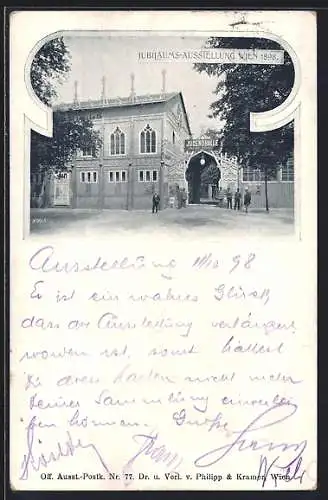 JUBILÄUMS-AUSSTELLUNG WIEN 1898.
JUGENDHALLE
Ausstellung 11/10 98
Es ist ein wahres Glück,
dass die Ausstellung verlängert
worden ist, sonst hättest
Du diese Karten nicht mehr
Deiner Sammlung einverlei-
ben können. Gruß
Franz
Off. Ausst.-Postk. Nr. 77. Dr. u. Verl. v. Philipp & Kramer, Wien